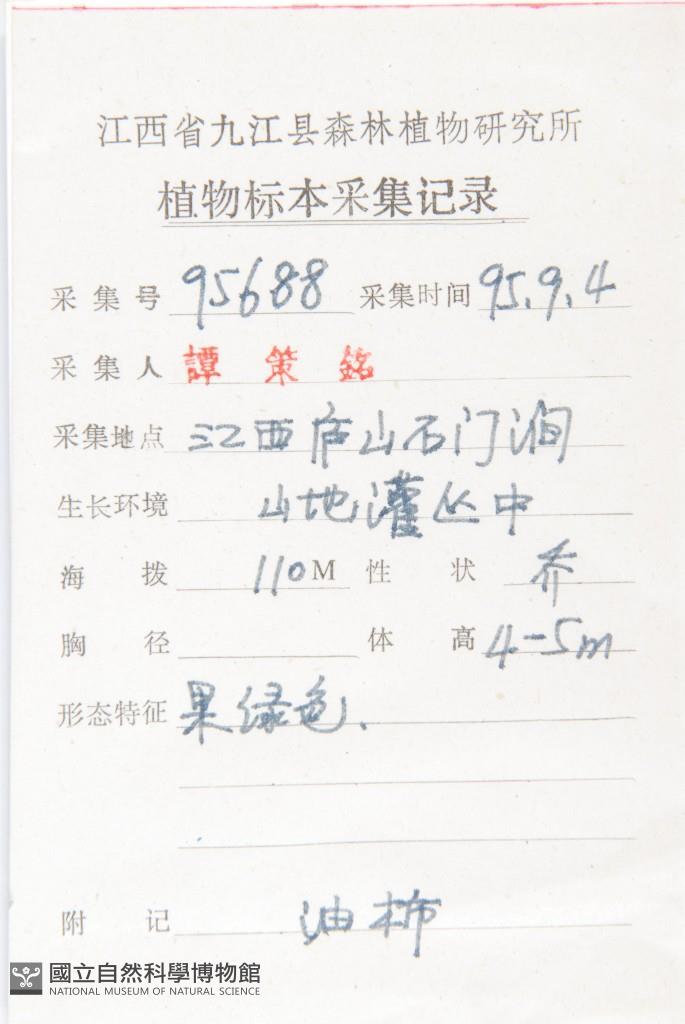 江西省九江县森林植物研究所
植物标本采集记录
采集号 95688 采集时间 95.9.4
采集人 譚策銘
采集地点 江西庐山石门涧
生长环境 山地灌丛中
海拨 110M 性状 乔
胸径 体高 4-5m
形态特征 果绿色.
附记 油柿
國立自然科學博物館
NATIONAL MUSEUM OF NATURAL SCIENCE